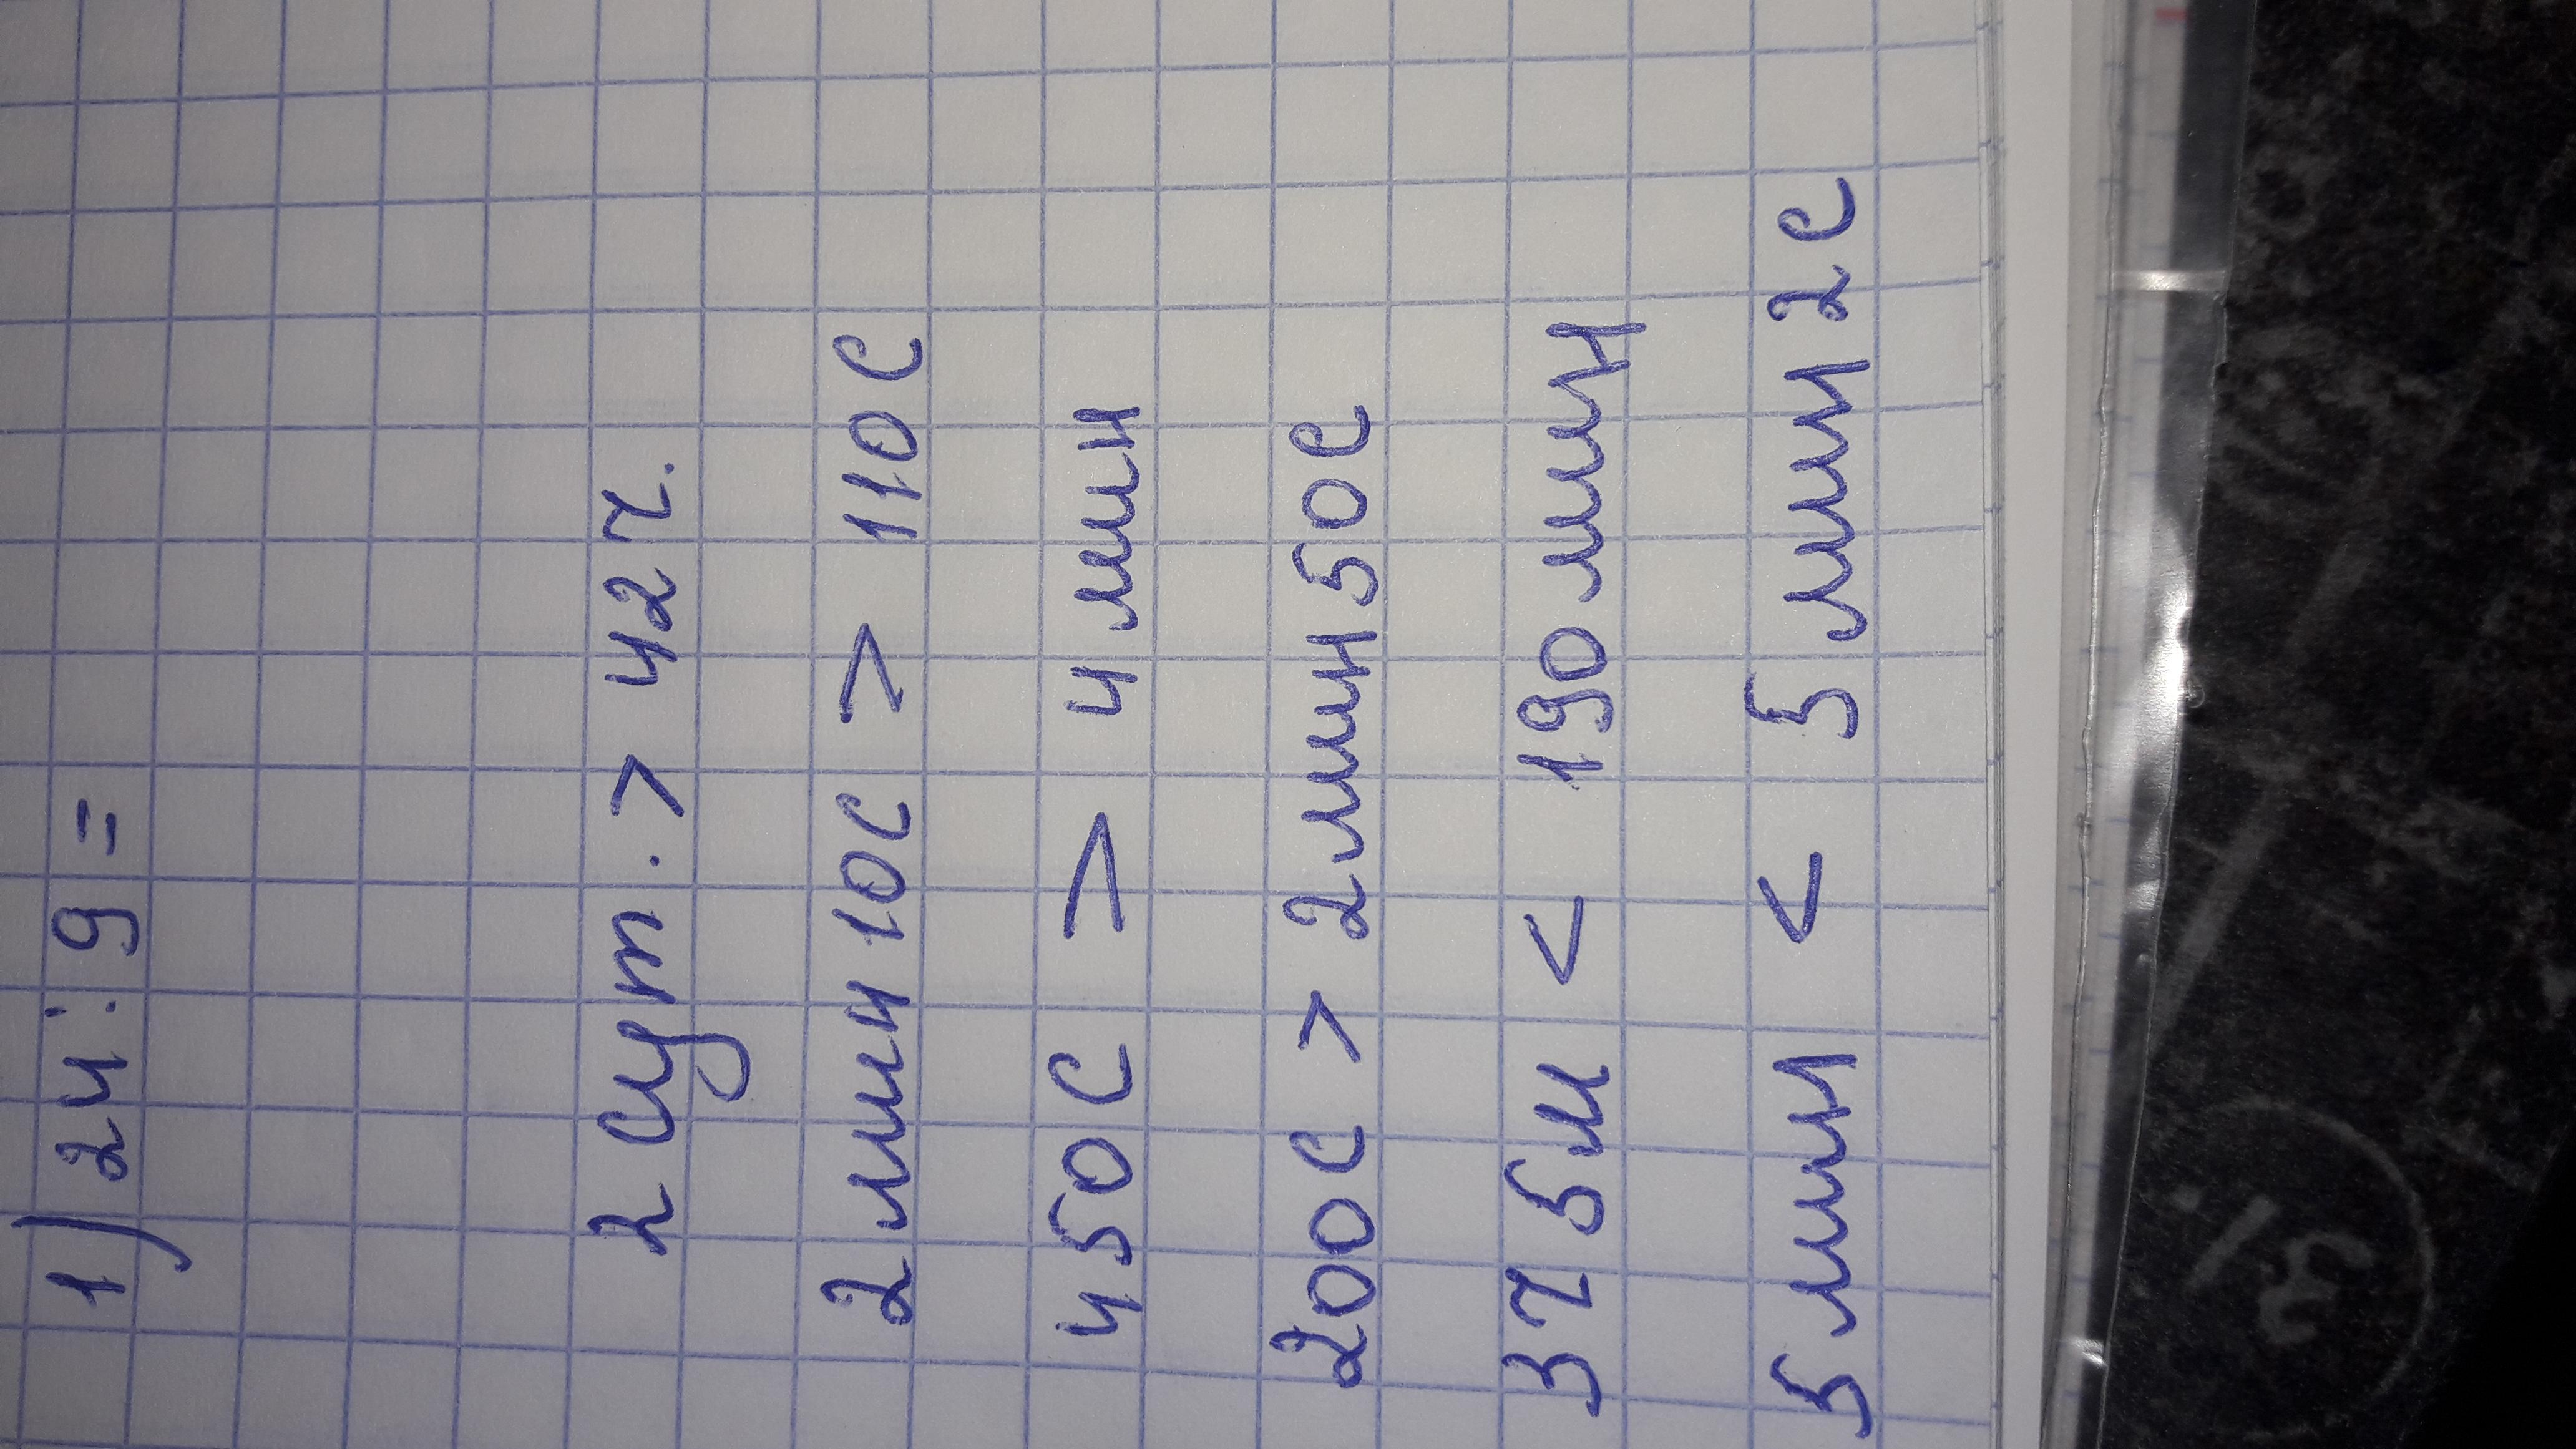 1) 24 : 9 =
2 сут. > 42 ч.
2 мин 10 с > 110 с
450 с > 4 мин
200 с > 2 мин 50 с
3 ч 5 м < 190 мин
5 мин < 5 мин 2 с